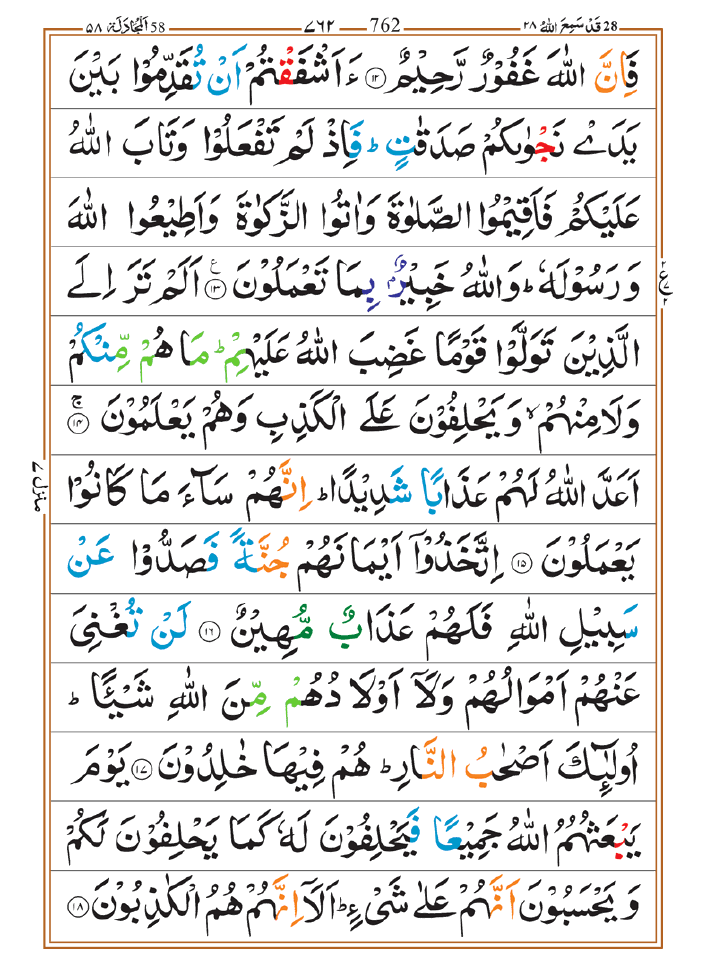 28 قَدْ سَمِعَ اللّٰهُ ٢٨ 762 ٧٦٢ 58 اَلْمُجَادَلَة ٥٨
فَاِنَّ اللّٰهَ غَفُوْرٌ رَّحِيْمٌ ۝١٢ ءَاَشْفَقْتُمْ اَنْ تُقَدِّمُوْا بَيْنَ
يَدَيْ نَجْوٰىكُمْ صَدَقٰتٍ ؕ فَاِذْ لَمْ تَفْعَلُوْا وَتَابَ اللّٰهُ
عَلَيْكُمْ فَاَقِيْمُوا الصَّلٰوةَ وَاٰتُوا الزَّكٰوةَ وَاَطِيْعُوا اللّٰهَ
وَرَسُوْلَهٗ ؕ وَاللّٰهُ خَبِيْرٌۢ بِمَا تَعْمَلُوْنَ ۝١٣ ع اَلَمْ تَرَ اِلَى
الَّذِيْنَ تَوَلَّوْا قَوْمًا غَضِبَ اللّٰهُ عَلَيْهِمْ ؕ مَا هُمْ مِّنْكُمْ
وَلَا مِنْهُمْ ۙ وَيَحْلِفُوْنَ عَلَى الْكَذِبِ وَهُمْ يَعْلَمُوْنَ ۝١٤ ج
اَعَدَّ اللّٰهُ لَهُمْ عَذَابًا شَدِيْدًا ؕ اِنَّهُمْ سَآءَ مَا كَانُوْا
يَعْمَلُوْنَ ۝١٥ اِتَّخَذُوْۤا اَيْمَانَهُمْ جُنَّةً فَصَدُّوْا عَنْ
سَبِيْلِ اللّٰهِ فَلَهُمْ عَذَابٌ مُّهِيْنٌ ۝١٦ لَنْ تُغْنِيَ
عَنْهُمْ اَمْوَالُهُمْ وَلَاۤ اَوْلَادُهُمْ مِّنَ اللّٰهِ شَيْـًٔا ؕ
اُولٰٓئِكَ اَصْحٰبُ النَّارِ ؕ هُمْ فِيْهَا خٰلِدُوْنَ ۝١٧ يَوْمَ
يَبْعَثُهُمُ اللّٰهُ جَمِيْعًا فَيَحْلِفُوْنَ لَهٗ كَمَا يَحْلِفُوْنَ لَكُمْ
وَيَحْسَبُوْنَ اَنَّهُمْ عَلٰى شَيْءٍ ؕ اَلَاۤ اِنَّهُمْ هُمُ الْكٰذِبُوْنَ ۝١٨
منزل ٧